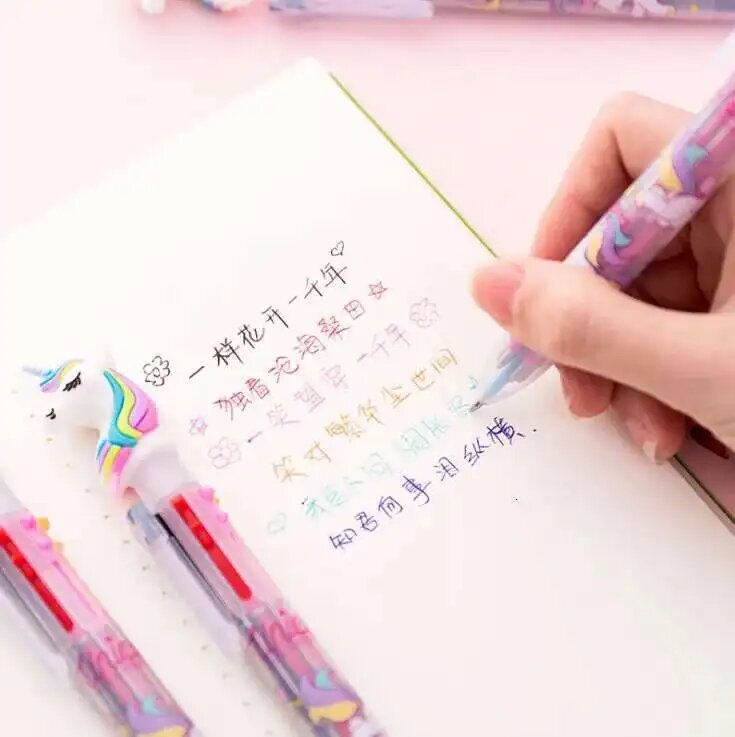 一样花开一千年
独看沧海桑田
一笑望穿一千年
笑对繁华尘世间
我是人间惆怅客
知君何事泪纵横.